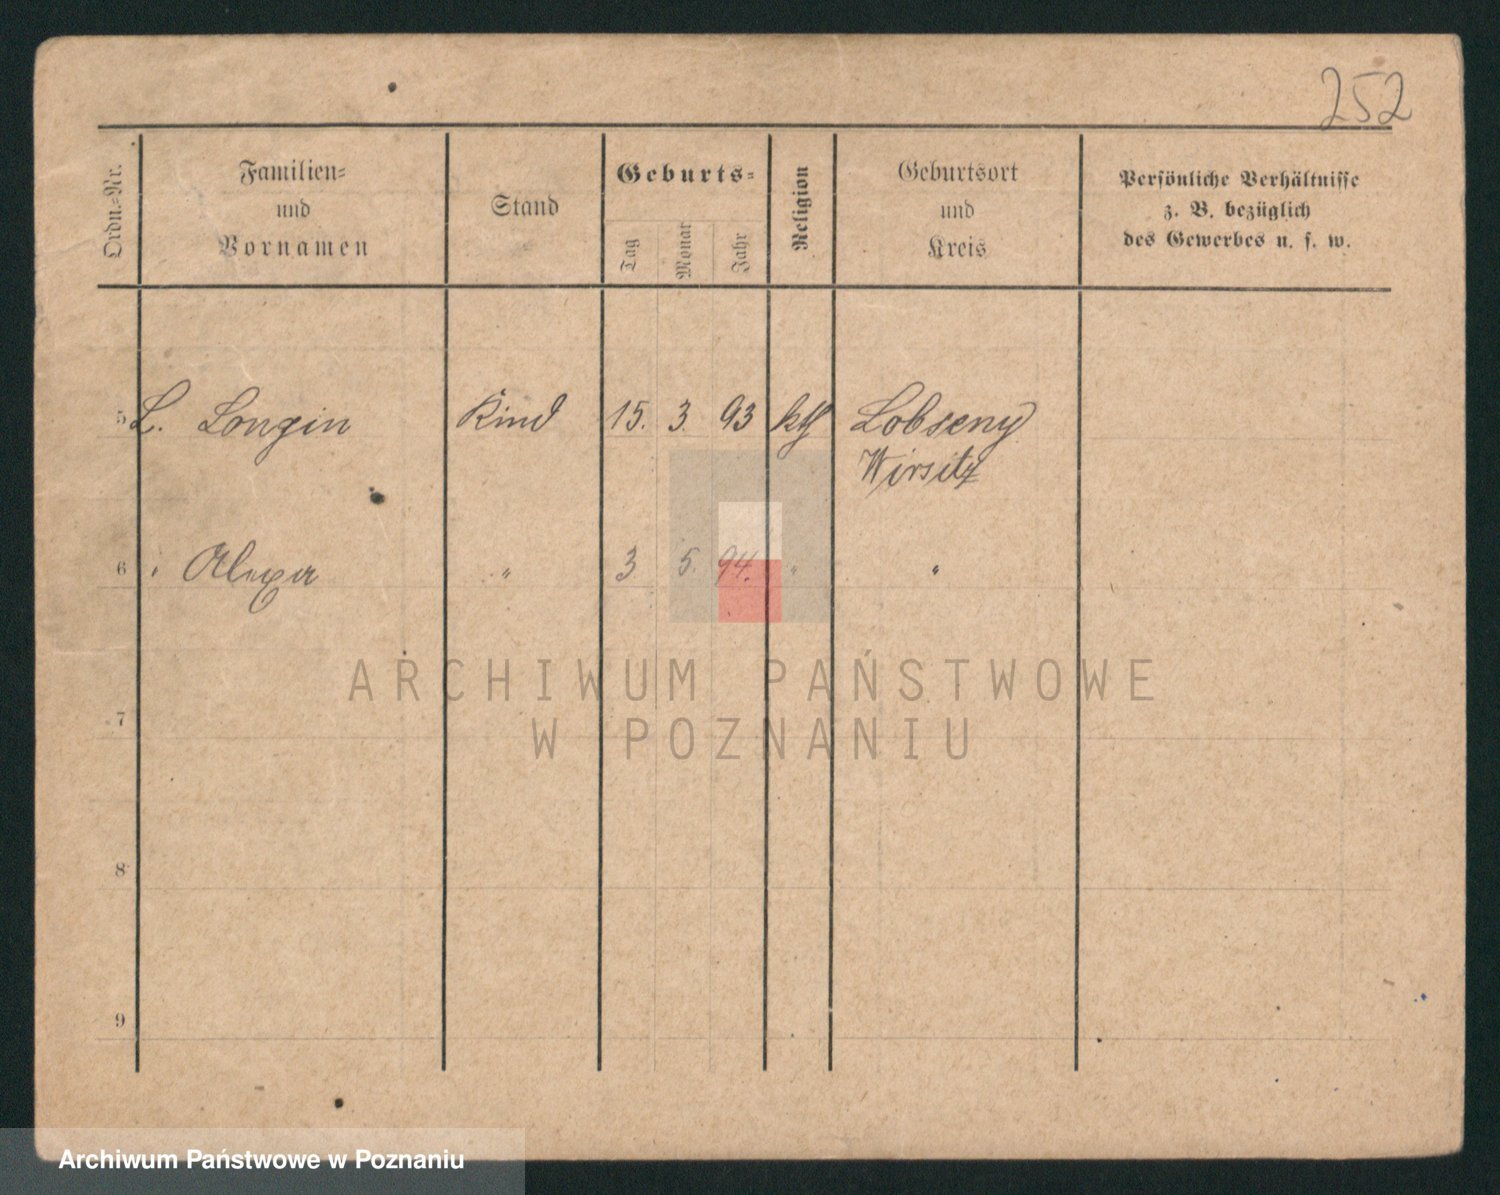 252
Ordn.-Nr.
Familien-
und
Vornamen
Stand
Geburts-
Tag
Monat
Jahr
Religion
Geburtsort
und
Kreis
Persönliche Verhältnisse
z. B. bezüglich
des Gewerbes u. s. w.
5 L. Longin Kind 15. 3. 93 kth Lobseny
Wirsitz
6 " Alexa " 3 5. 94. " "
ARCHIWUM PAŃSTWOWE
W POZNANIU
7
8
9
Archiwum Państwowe w Poznaniu